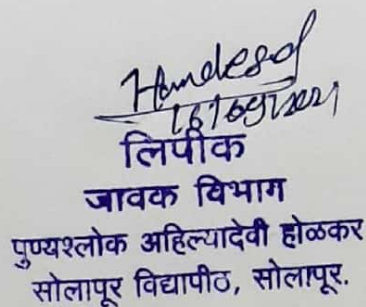 लिपीक
जावक विभाग
पुण्यश्लोक अहिल्यादेवी होळकर
सोलापूर विद्यापीठ, सोलापूर.